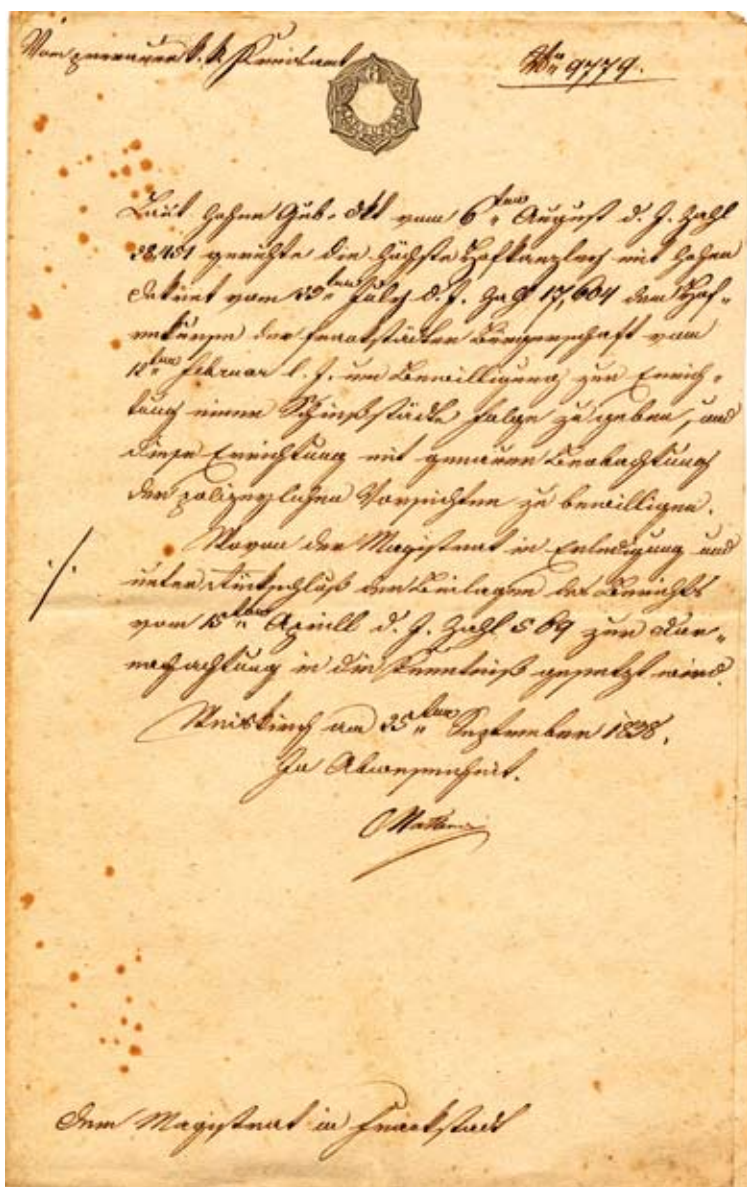 Vom prerauer k. k. Kreisamt
Nro 9779.
Laut hohen Gub. Dkt vom 6ten August d. J. Zahl
28451 geruhte die höchste Hofkanzley mit hohen
Dekret vom ten July d. J. Zahl 17,604 dem Hof-
rekurse der Freistädter Bürgerschaft vom
12ten Februar l. J. um Bewilligung zur Errich-
tung einer Schießstädte Folge zu geben, und
diese Errichtung mit genauer Beobachtung
der polizeylichen Vorsichten zu bewilligen.
Wovon der Magistrat in Erledigung und
./. unter Rückschluß der Beilagen des Berichts
vom 15ten Aprill d. J. Zahl 569 zur Dar-
nachachtung in die Kenntniß gesetzt wird.
Weiskirch am 25ten September 1838.
In Abwesenheit.
Dem Magistrat in